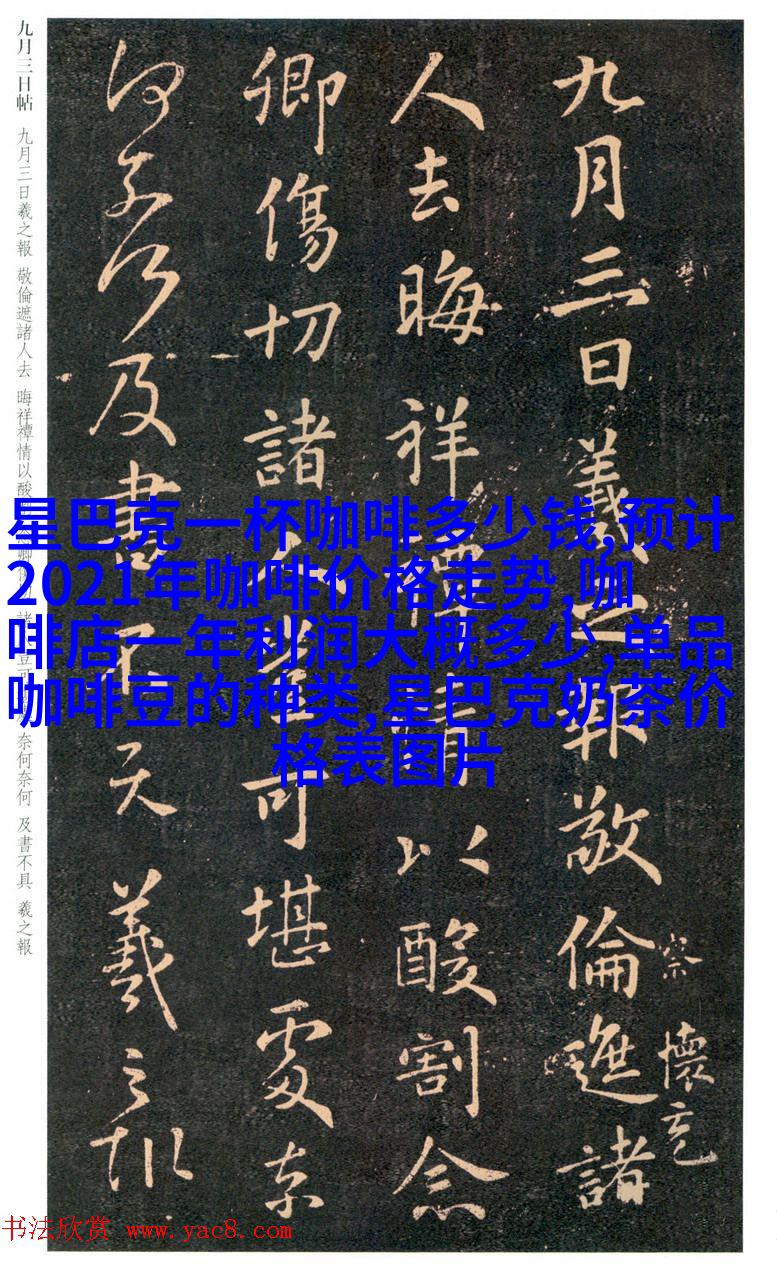 九月三日羲之報敬倫遮諸
察 懷充
人去晦祥禫情以酸割念
卿傷切諸人豈可堪處奈
何奈何及書不具羲之報
九月三日帖 九月三日羲之報 敬倫遮諸人去 晦祥禫情以酸 奈何奈何 及書不具 羲之報
星巴克一杯咖啡多少钱,预计
2021年咖啡价格走势,咖
啡店一年利润大概多少,单品
咖啡豆的种类,星巴克奶茶价
格表图片
书法欣赏 www.yac8.com